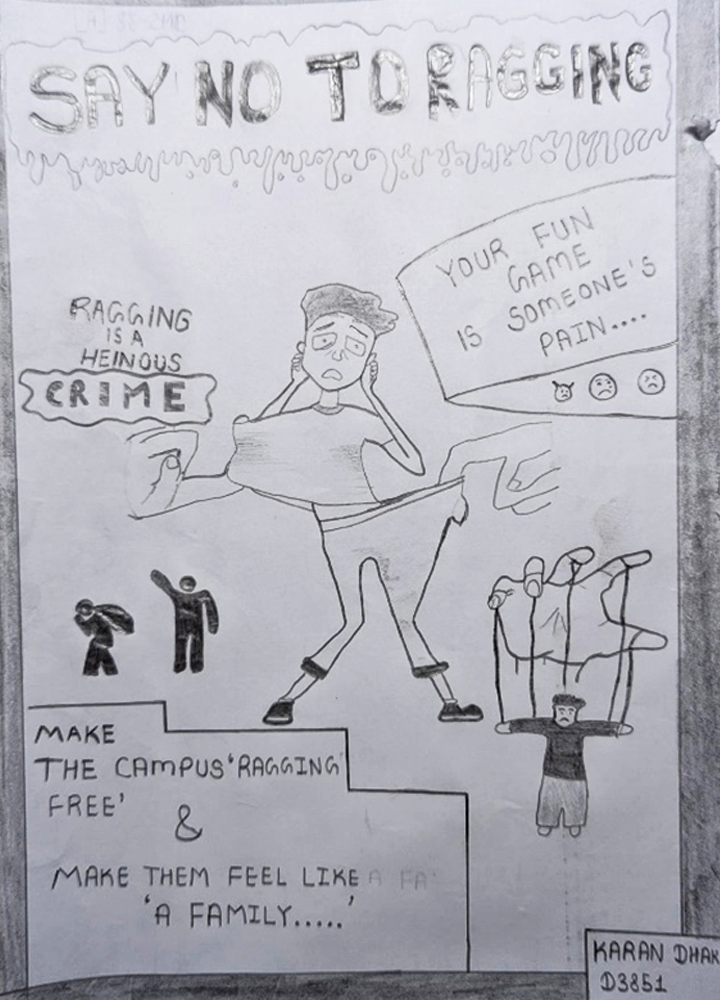 SAY NO TO RAGGING
YOUR FUN
GAME
IS SOMEONE'S
PAIN....
RAGGING
IS A
HEINOUS
CRIME
MAKE
THE CAMPUS 'RAGGING
FREE'
&
MAKE THEM FEEL LIKE A FA
'A FAMILY.....'
KARAN DHAK
D3851